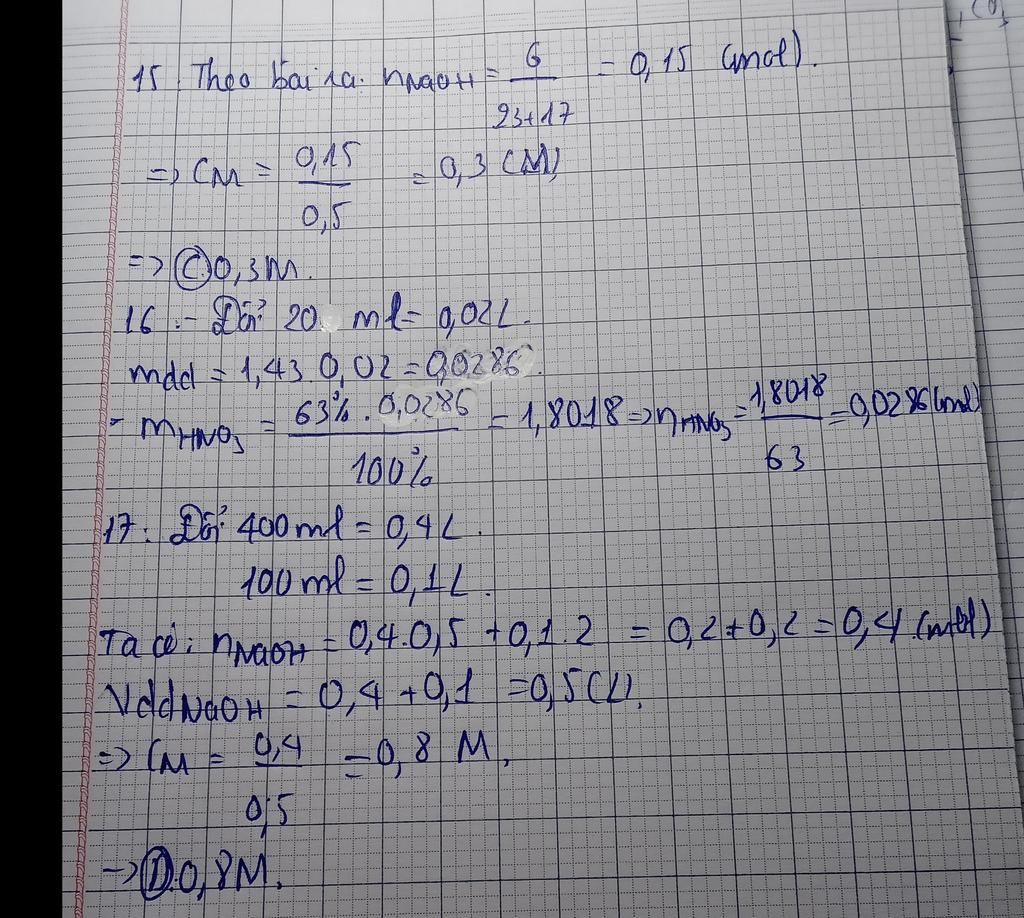 15. Theo bài ra. nNaOH = 6/(23+17) = 0,15 (mol).
=> CM = 0,15/0,5 = 0,3 (M)
=> C 0,3M.
16 - Đổi 20 ml = 0,02L.
mdd = 1,43.0,02 = 0,0286.
- mHNO3 = (63%.0,0286)/100% = 1,8018 => nHNO3 = 1,8018/63 = 0,0286 (mol)
17. Đổi 400ml = 0,4L.
100ml = 0,1L.
Ta có: nNaOH = 0,4.0,5 + 0,1.2 = 0,2+0,2 = 0,4 (mol)
VddNaOH = 0,4 + 0,1 = 0,5 (L).
=> CM = 0,4/0,5 = 0,8 M.
-> D.0,8M.